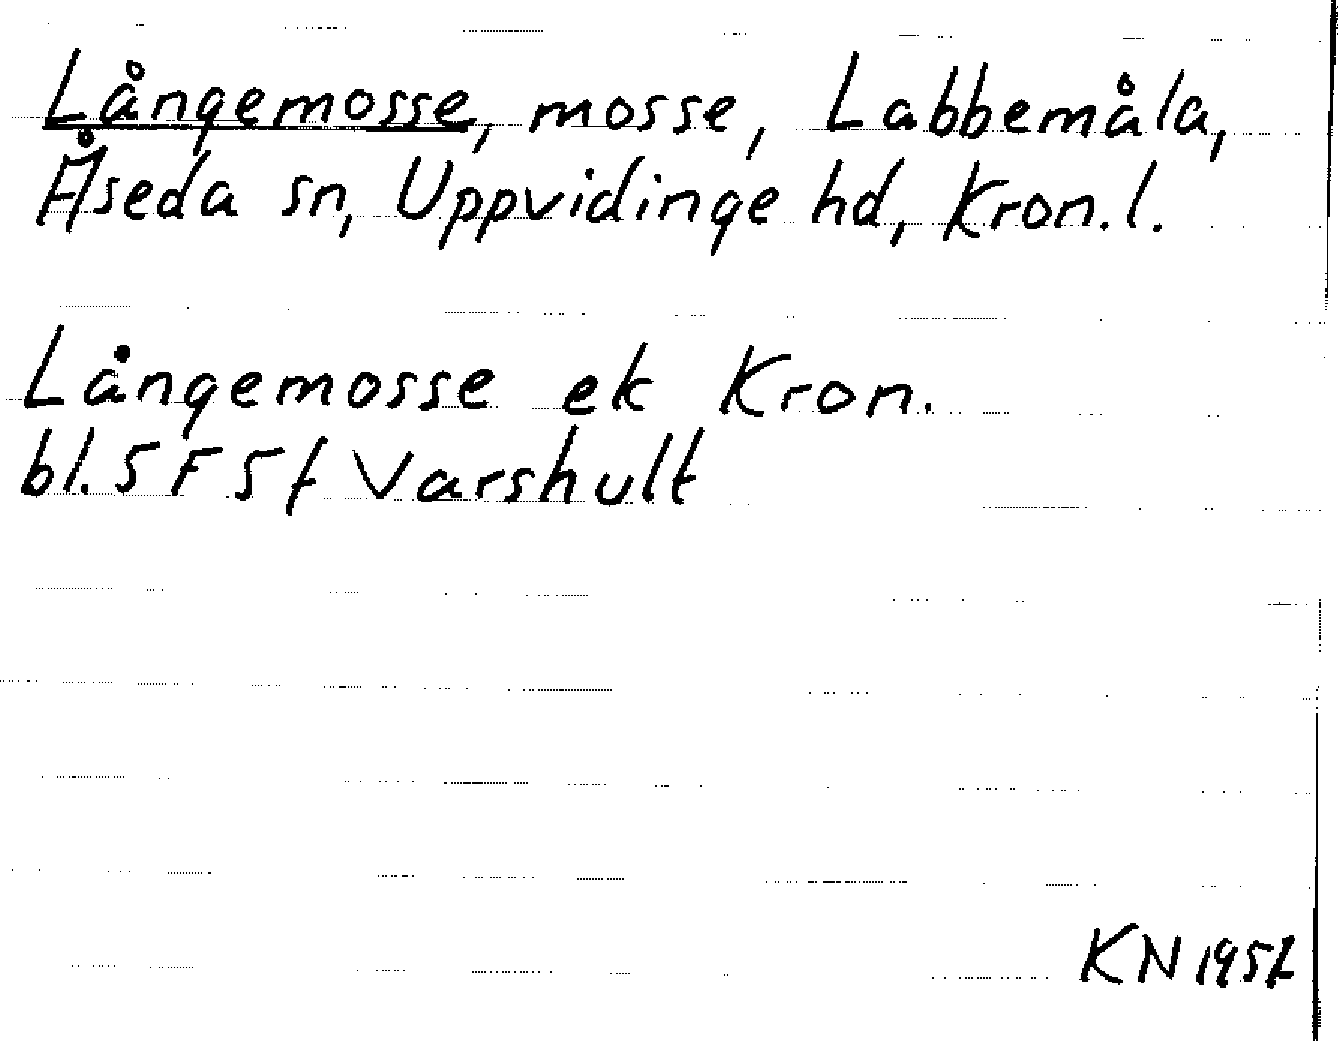 Långemosse, mosse, Labbemåla,
Åseda sn, Uppvidinge hd, Kron. l.
Långemosse ek Kron.
bl. 5 F 5 f Varshult
KN